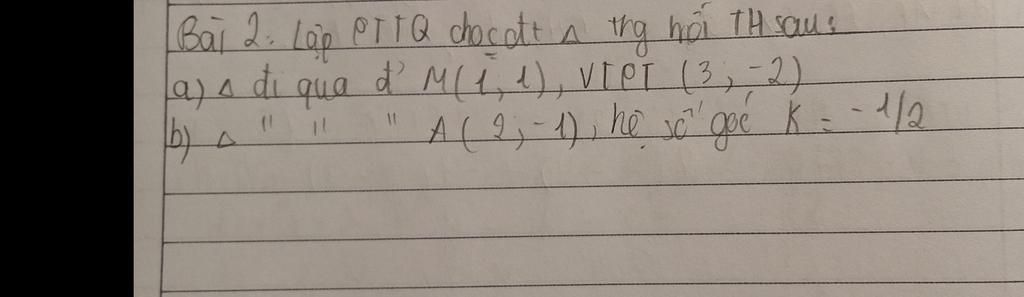 Bài 2. Lập PTTQ cho các đt Δ trg hỏi TH sau:
a) Δ đi qua đ' M(1, 1), VTPT (3, -2)
b) Δ " " " A(2, -1), hệ số góc K = -1/2